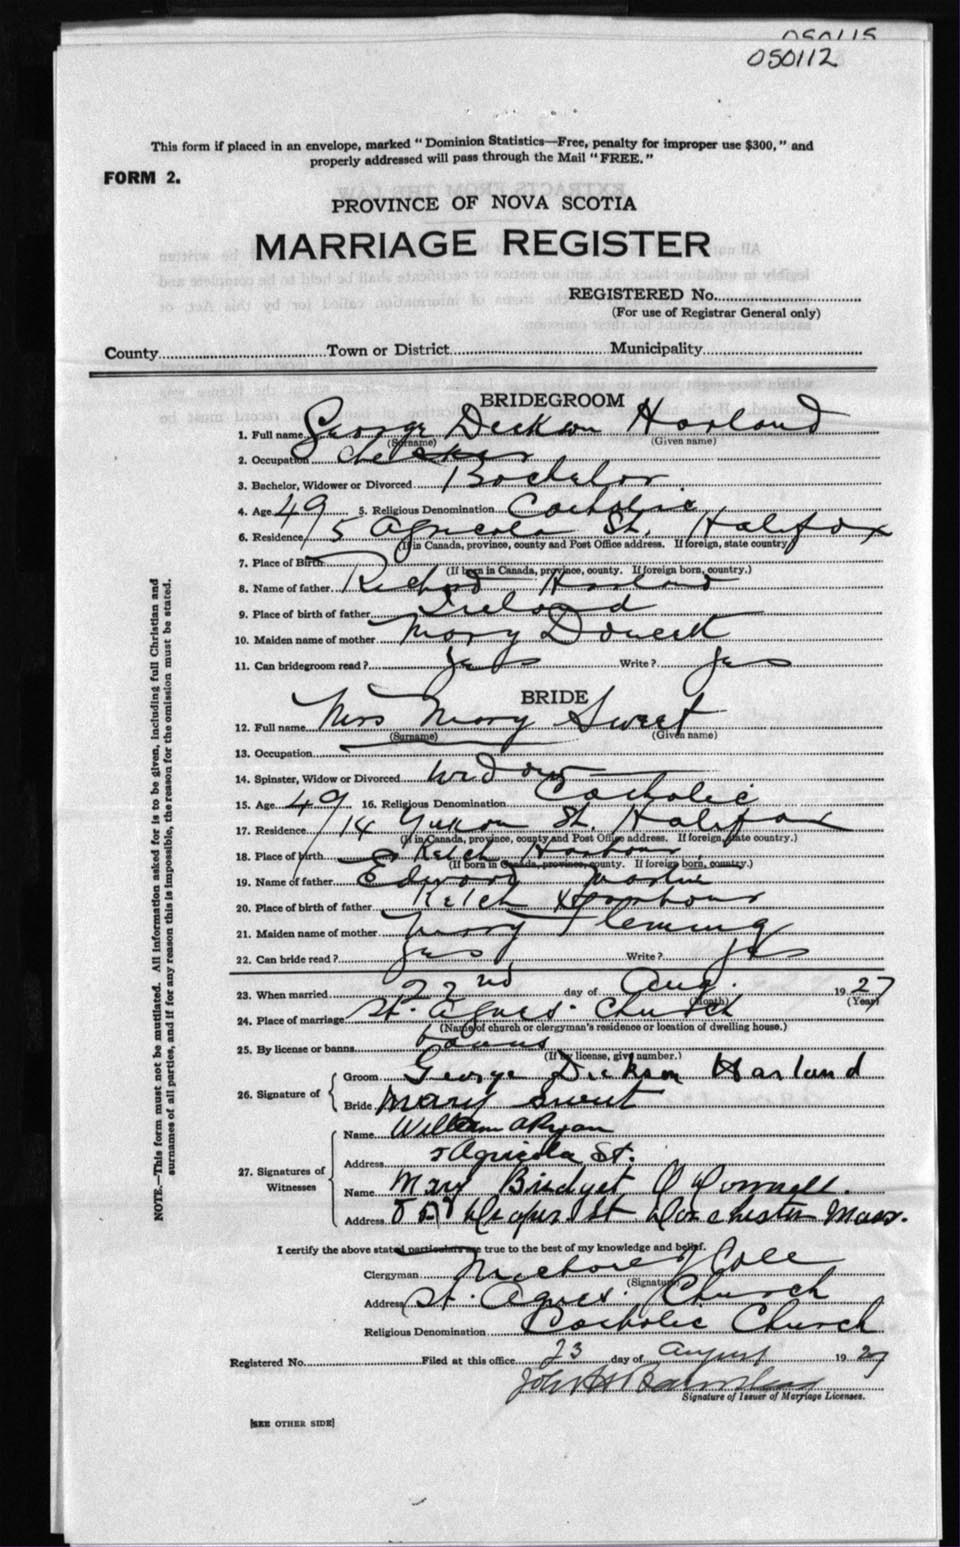 050115
050112
This form if placed in an envelope, marked "Dominion Statistics—Free, penalty for improper use $300," and
properly addressed will pass through the Mail "FREE."
FORM 2.
PROVINCE OF NOVA SCOTIA
MARRIAGE REGISTER
REGISTERED No.
(For use of Registrar General only)
County Town or District Municipality
BRIDEGROOM
1. Full name George Dickson Harland
(Surname) (Given name)
2. Occupation
3. Bachelor, Widower or Divorced Bachelor
4. Age 49 5. Religious Denomination Catholic
6. Residence 5 Agricola St. Halifax
(If in Canada, province, county and Post Office address. If foreign, state country)
7. Place of Birth
(If born in Canada, province, county. If foreign born, country.)
8. Name of father Richard Harland
9. Place of birth of father Ireland
10. Maiden name of mother Mary
11. Can bridegroom read? yes Write? yes
BRIDE
12. Full name Mrs Mary Sweet
(Surname) (Given name)
13. Occupation
14. Spinster, Widow or Divorced Widow
15. Age 49 16. Religious Denomination Catholic
17. Residence 14 Yukon St. Halifax
(If in Canada, province, county and Post Office address. If foreign, state country.)
18. Place of birth Ketch Harbour
(If born in Canada, province, county. If foreign born, country.)
19. Name of father Edward Martin
20. Place of birth of father Ketch Harbour
21. Maiden name of mother Mary Fleming
22. Can bride read? yes Write? yes
23. When married 22nd day of Aug. 1927
(Month) (Year)
24. Place of marriage St. Agnes. Church
(Name of church or clergyman's residence or location of dwelling house.)
25. By license or banns banns
(If by license, give number.)
26. Signature of Groom George Dickson Harland
Bride Mary Sweet
27. Signatures of Witnesses Name William A Ryan
Address 5 Agricola St.
Name Mary Bridget O'Donnell.
Address St Dorchester Mass.
I certify the above stated particulars are true to the best of my knowledge and belief.
Clergyman Cole
(Signature)
Address St. Agnes. Church
Religious Denomination Catholic Church
Registered No. Filed at this office 23 day of August 1927
John H
Signature of Issuer of Marriage Licenses.
[SEE OTHER SIDE]
NOTE.—This form must not be mutilated. All information asked for is to be given, including full Christian and
surnames of all parties, and if for any reason this is impossible, the reason for the omission must be stated.